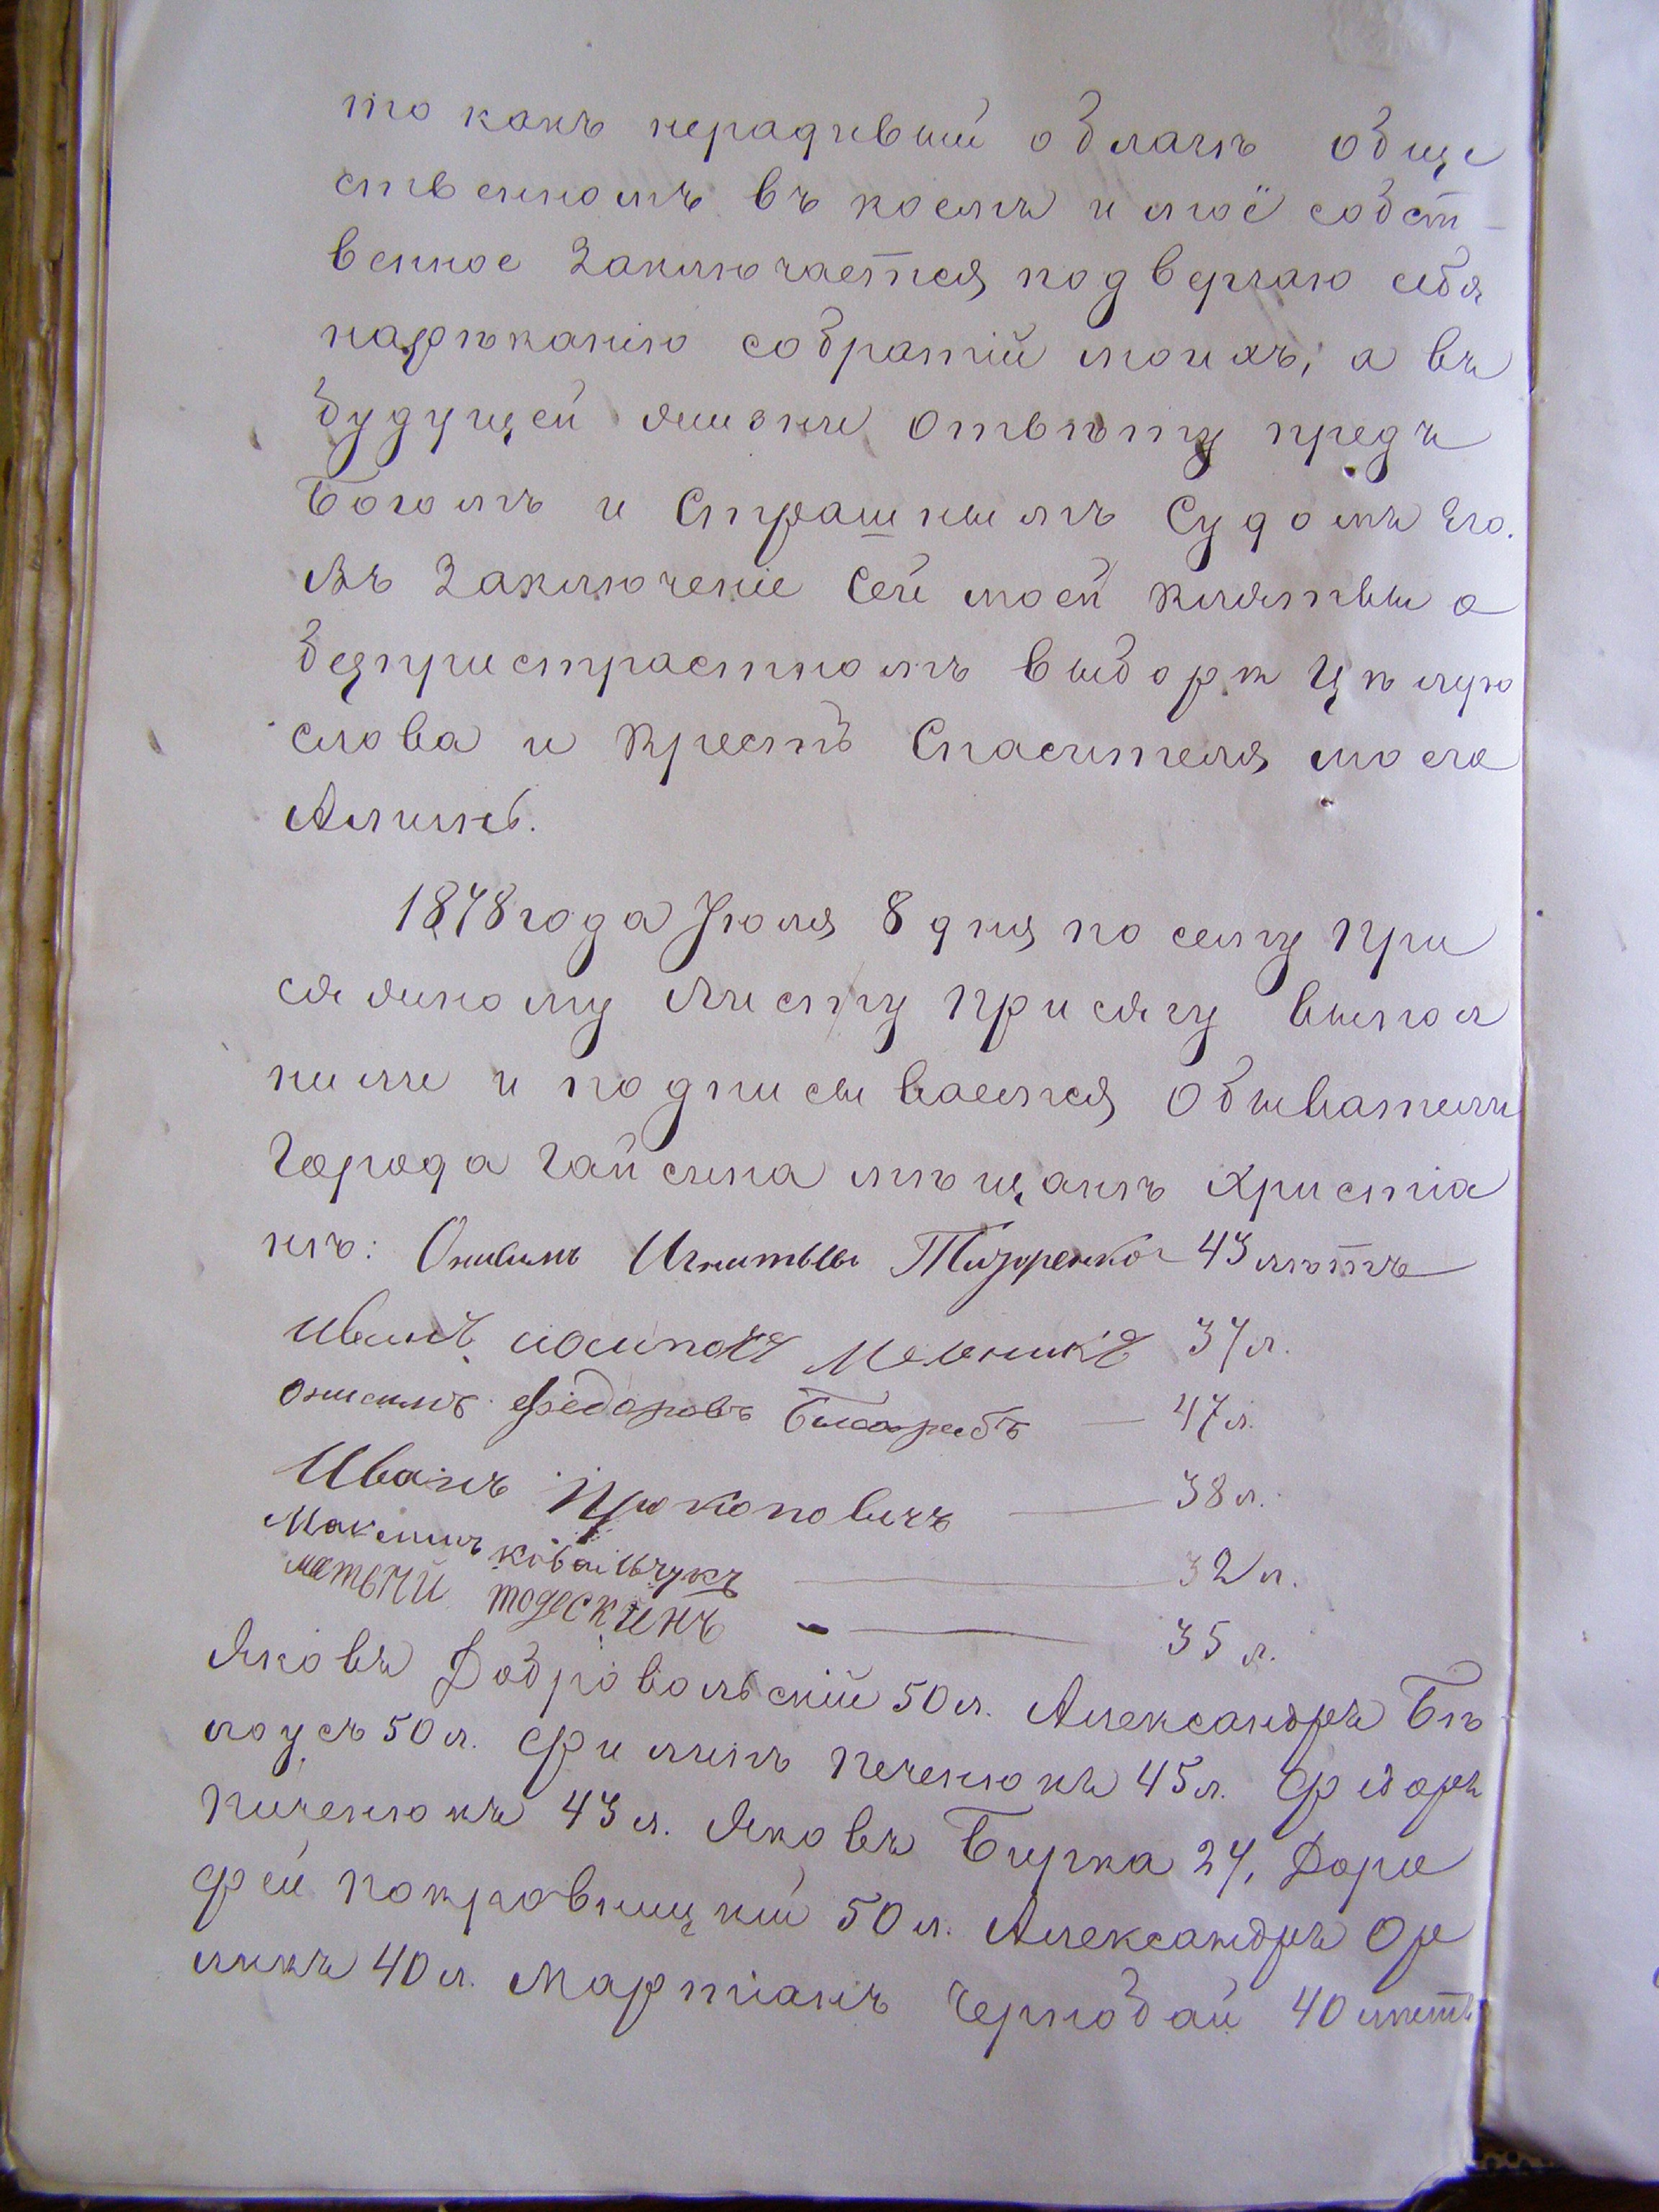 то какъ нерадивый о благѣ обще
ственномъ въ коемъ и моё собст-
венное заключается, подвергаю себя
нарѣканію собратій моихъ, а въ
будущей жизни отвѣту предъ
Богомъ и Страшнымъ Судомъ Его.
Въ заключеніе сей моей клятвы о
безпристрастномъ выборѣ цѣлую
слова и Крестъ Спасителя моего
Аминь.
1878 года Іюля 8 дня по сему при
сяжному листу присягу выпол
нили и подписываемся обыватели
города Гайсина мѣщанъ христіа
нъ: Онисимъ Тизоренко 43 лѣтъ
Иванъ Мельникъ 37 л.
Онисимъ Федоровъ — 47 л.
Иванъ Прокоповичъ — 38 л.
Максимъ Ковальчукъ — 32 л.
матвѣй тодескинъ — 35 л.
Яковъ Добровольскій 50 л. Александръ Бѣ
лоусъ 50 л. Филипъ Печенюкъ 45 л. Фёдоръ
Печенюкъ 43 л. Яковъ Бирка 27, Доро
фей Покровницкій 50 л. Александръ Ор
ликъ 40 л. Мартіанъ Чернобай 40 лѣтъ